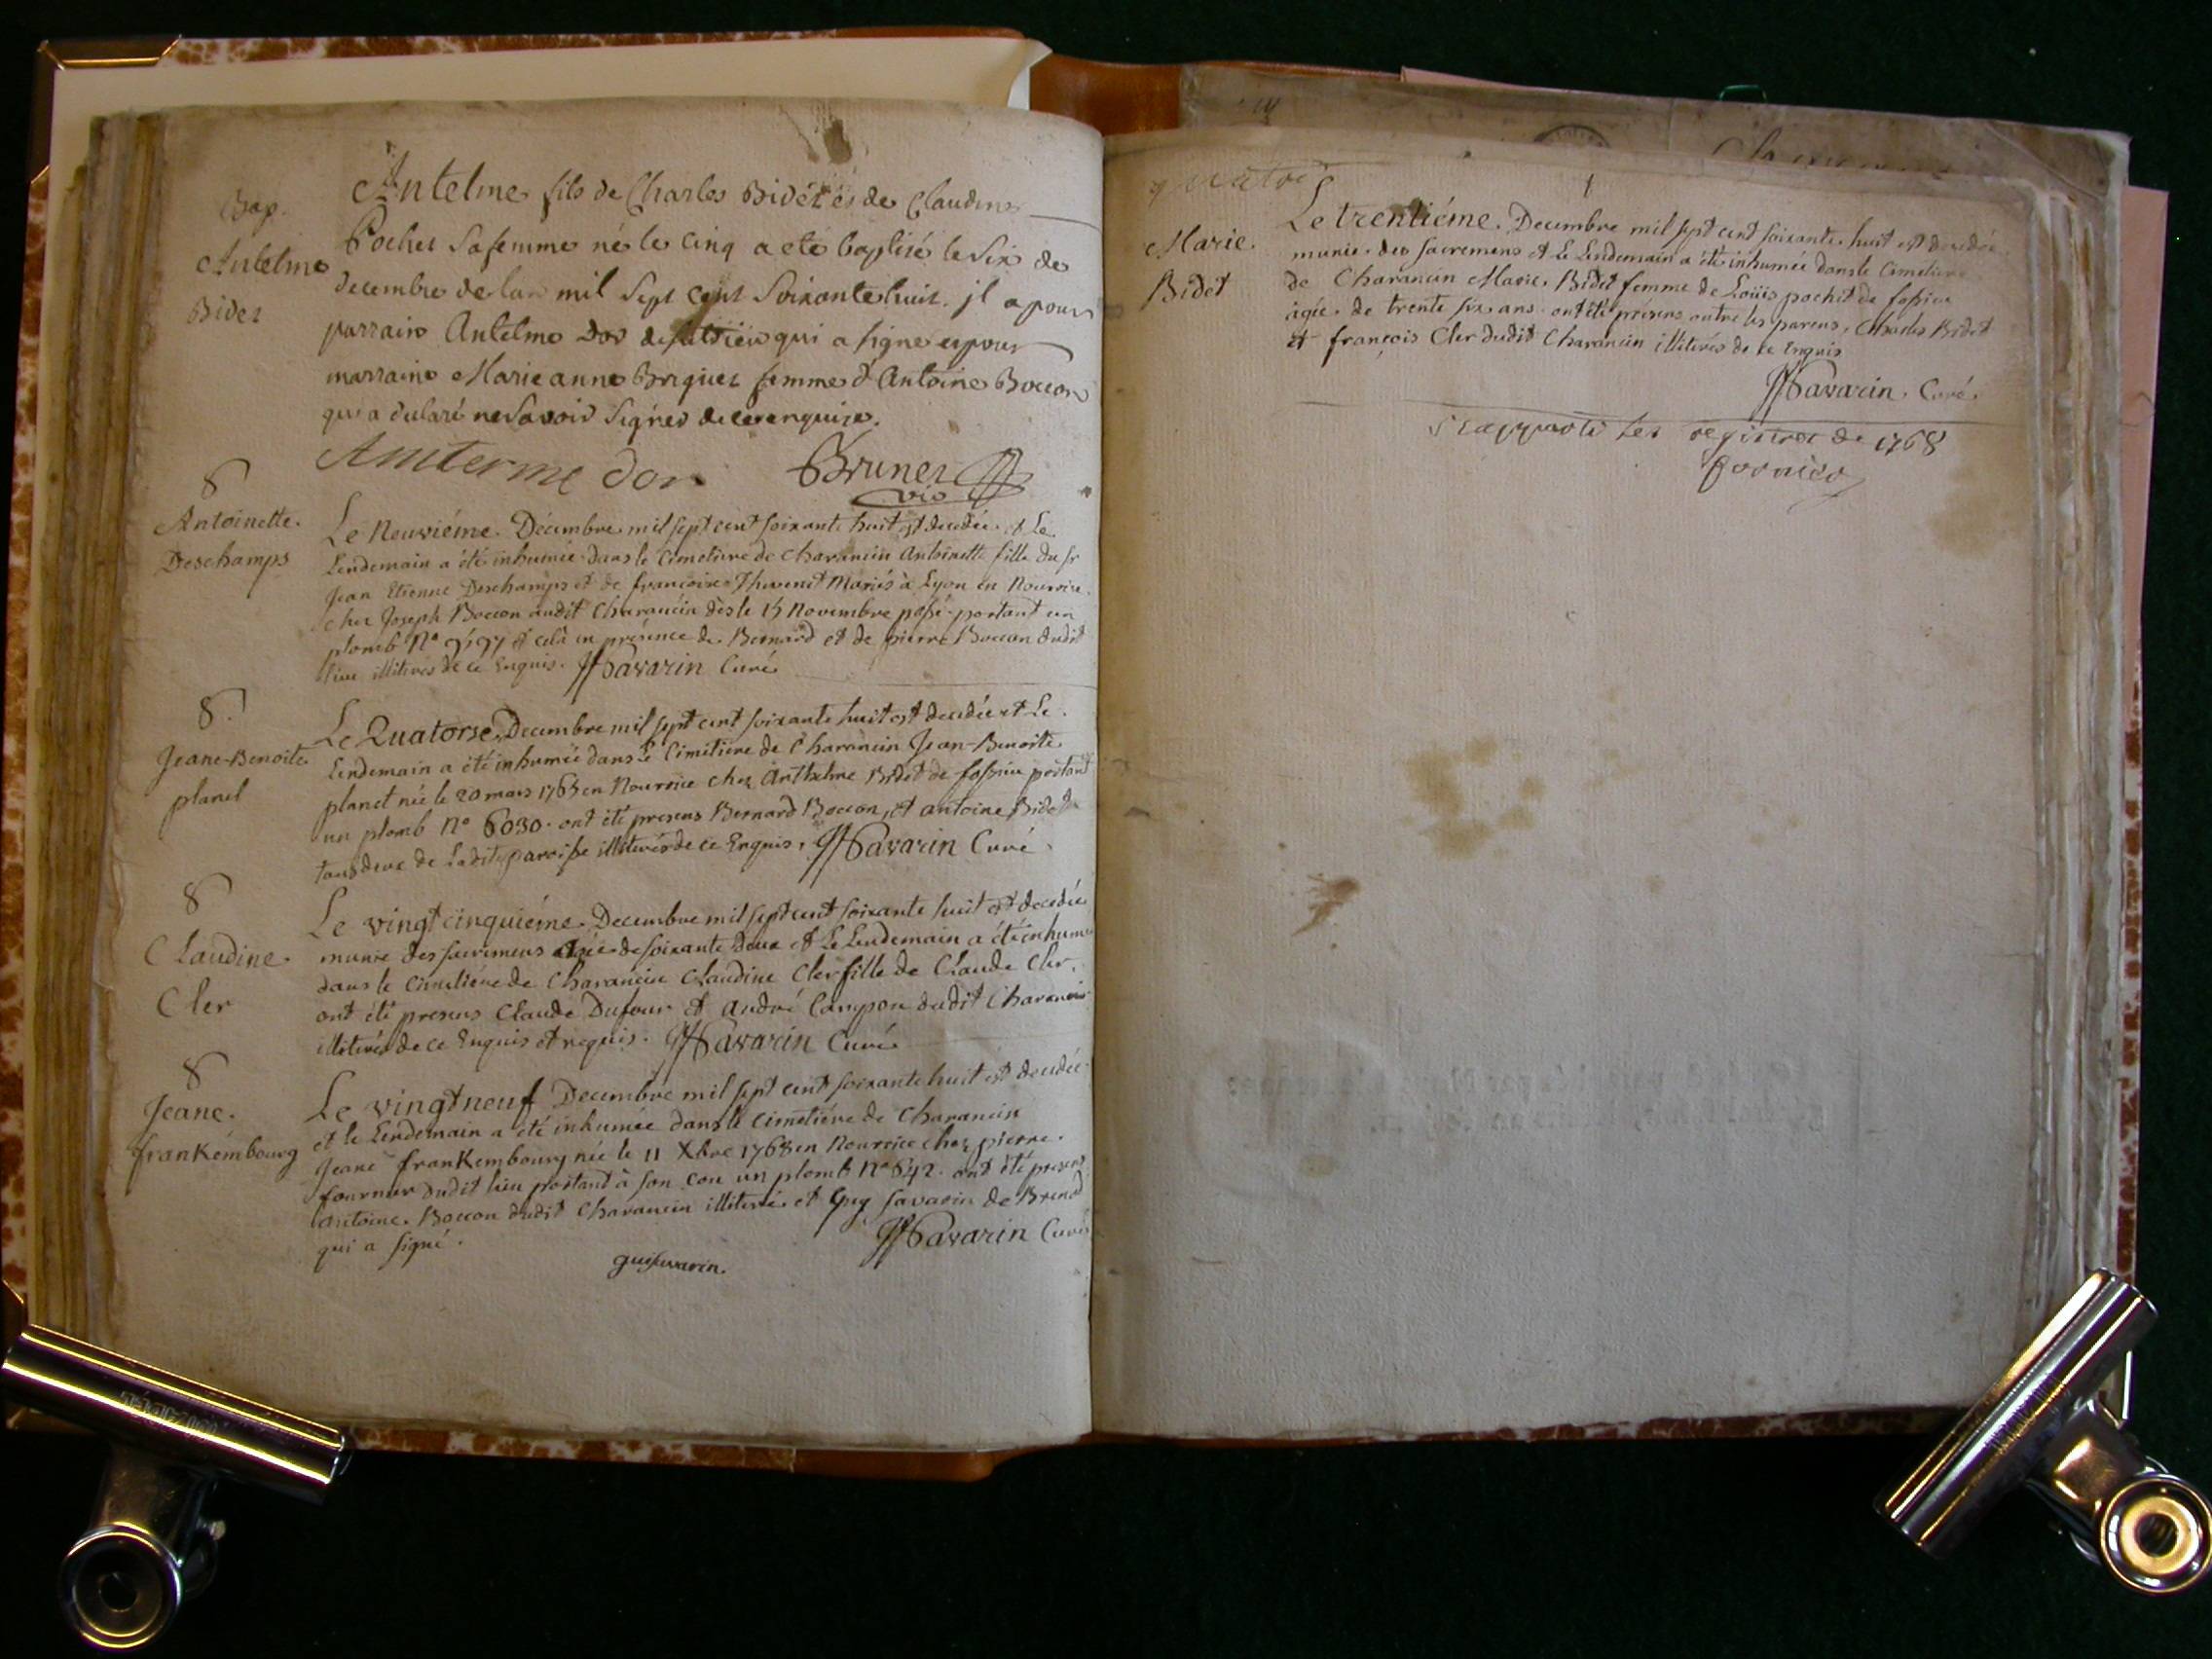 Bap.
Antelme
Bidet
Antelme fils de Charles Bidet et de Claudine
Pochet sa femme né le cinq a eté baptisé le six de
decembre de lan mil sept cent soixante huit. jl a pour
parrain Antelme Dor de qui a signé et pour
marraine Marie anne Briguet femme d'Antoine Boccon
qui a declaré ne savoir signer de ce enquise.
Anterme dor Brunet vic
8
Antoinette
Deschamps
Le Neuviéme Décembre mil sept cent soixante huit est decedée et Le
Lendemain a été inhumée dans le cimetiere de Charancin Antoinette fille du sr
Jean Etienne Deschamps et de françoise Thevenet Mariés à Lyon en Nourrice
chez Joseph Boccon audit Charancin dès le 15 Novembre passé portant un
plomb N° et celà en présence de Bernard et de pierre Boccon dudit
lieu illiterés de ce Enquis. Savarin Curé
8.
Jeane-Benoite
planet
Le Quatorse Decembre mil sept cent soixante huit est decedée et Le
Lendemain a été inhumée dans le Cimetiere de Charancin Jean-Benoite
planet née le 20 mars 1765 en Nourrice chez Anthelme Bidet de fossieu portant
un plomb N° 6030. ont été presens Bernard Boccon, et antoine Bidet
tous deux de Ladite paroisse illiterés de ce Enquis, Savarin Curé.
8
Claudine
Cler
Le vingt cinquiéme Decembre mil sept cent soixante huit est decedée
munie des sacremens agée de soixante deux et Le Lendemain a été inhumé
dans le cimetiére de Charancin Claudine Cler fille de Claude Cler,
ont été presens Claude Dufour et André Campon dudit Charancin
illiterés de ce Enquis et requis. Savarin Curé
8
Jeane
franKémbourg
Le vingt neuf Decembre mil sept cent soixante huit est decedée
et le Lendemain a été inhumée dans le cimetiére de Charancin
Jeane franKembourg née le 11 Xbre 1768 en Nourrice chez pierre
fournier dudit lieu portant à son cou un plomb N° 642. ont été presens
antoine Boccon dudit Charancin illiteré et Guy Savarin de Brenod
qui a signé. Savarin Curé
gui savarin.
quatre
Marie
Bidet
Le trentiéme Decembre mil sept cent soixante huit est decedée
munie des sacremens et Le Lendemain a été inhumée dans le Cimetiere
de Charancin Marie Bidet femme de Loüis pochet de fossieu
agée de trente six ans. ont été présens outre les parens, Charles Bidet
et françois Cler dudit Charancin illiterés de ce Enquis
Savarin Curé.
les registres de 1768